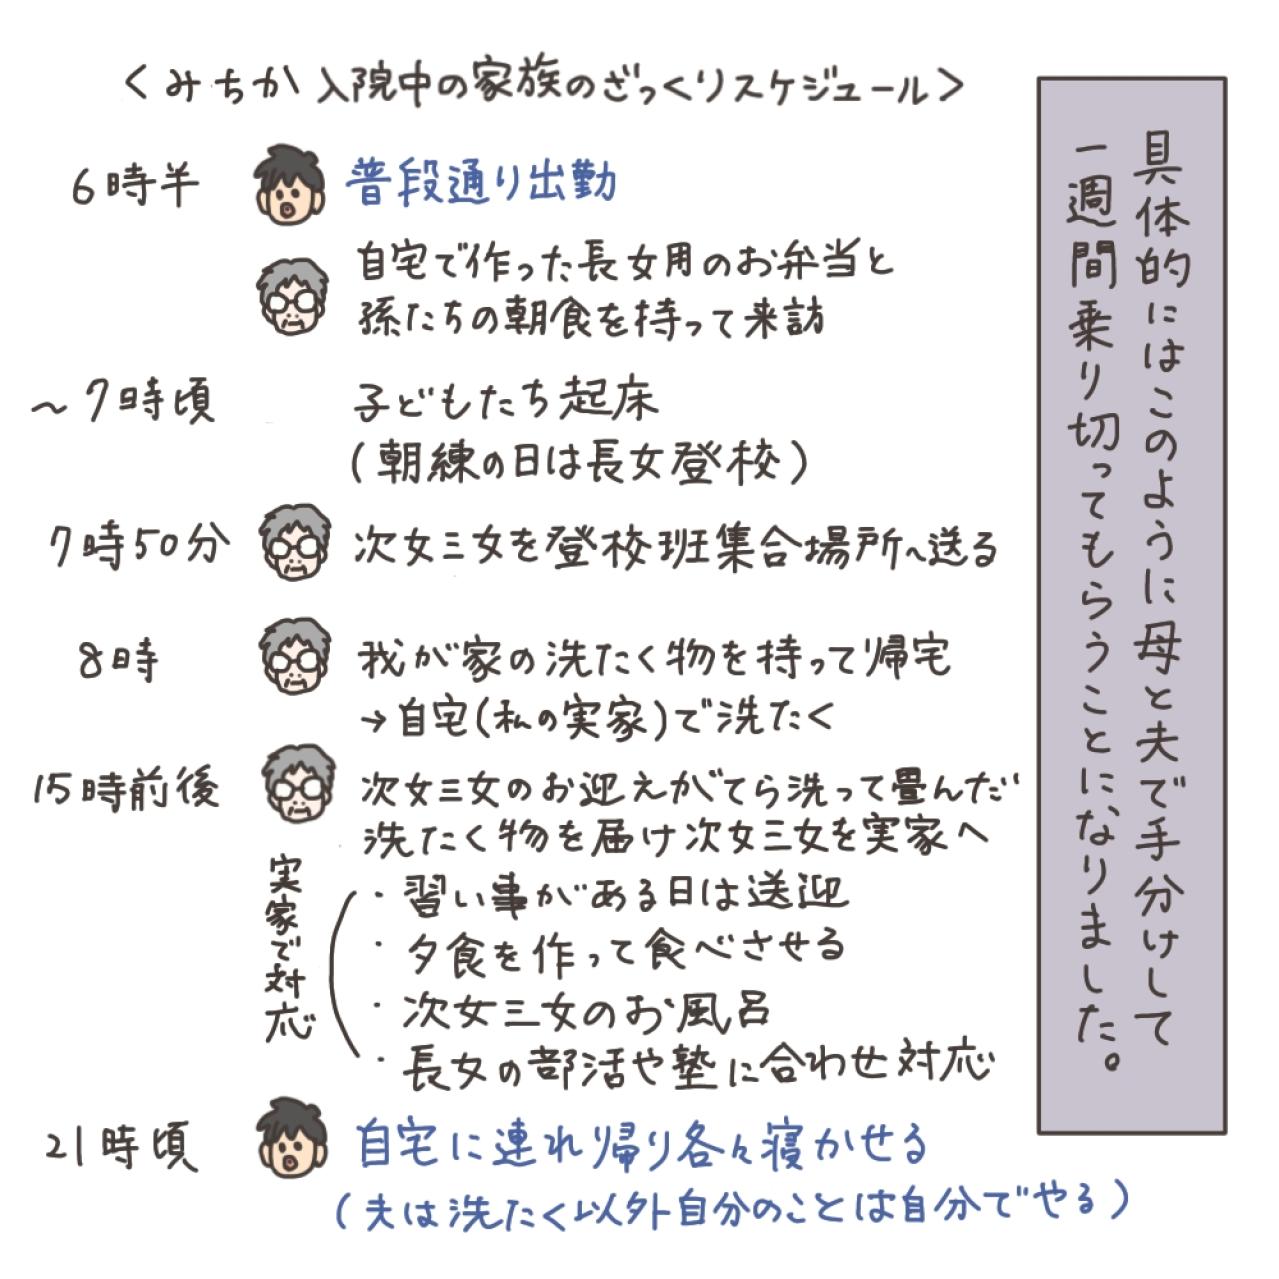 具体的にはこのように母と夫で手分けして
一週間乗り切ってもらうことになりました。
<みちか入院中の家族のざっくりスケジュール>
6時半 普段通り出勤
自宅で作った長女用のお弁当と
孫たちの朝食を持って来訪
~7時頃 子どもたち起床
(朝練の日は長女登校)
7時50分 次女三女を登校班集合場所へ送る
8時 我が家の洗たく物を持って帰宅
→自宅(私の実家)で洗たく
15時前後 次女三女のお迎えがてら洗って畳んだ
洗たく物を届け次女三女を実家へ
実家で対応
・習い事がある日は送迎
・夕食を作って食べさせる
・次女三女のお風呂
・長女の部活や塾に合わせ対応
21時頃 自宅に連れ帰り各々寝かせる
(夫は洗たく以外自分のことは自分でやる)